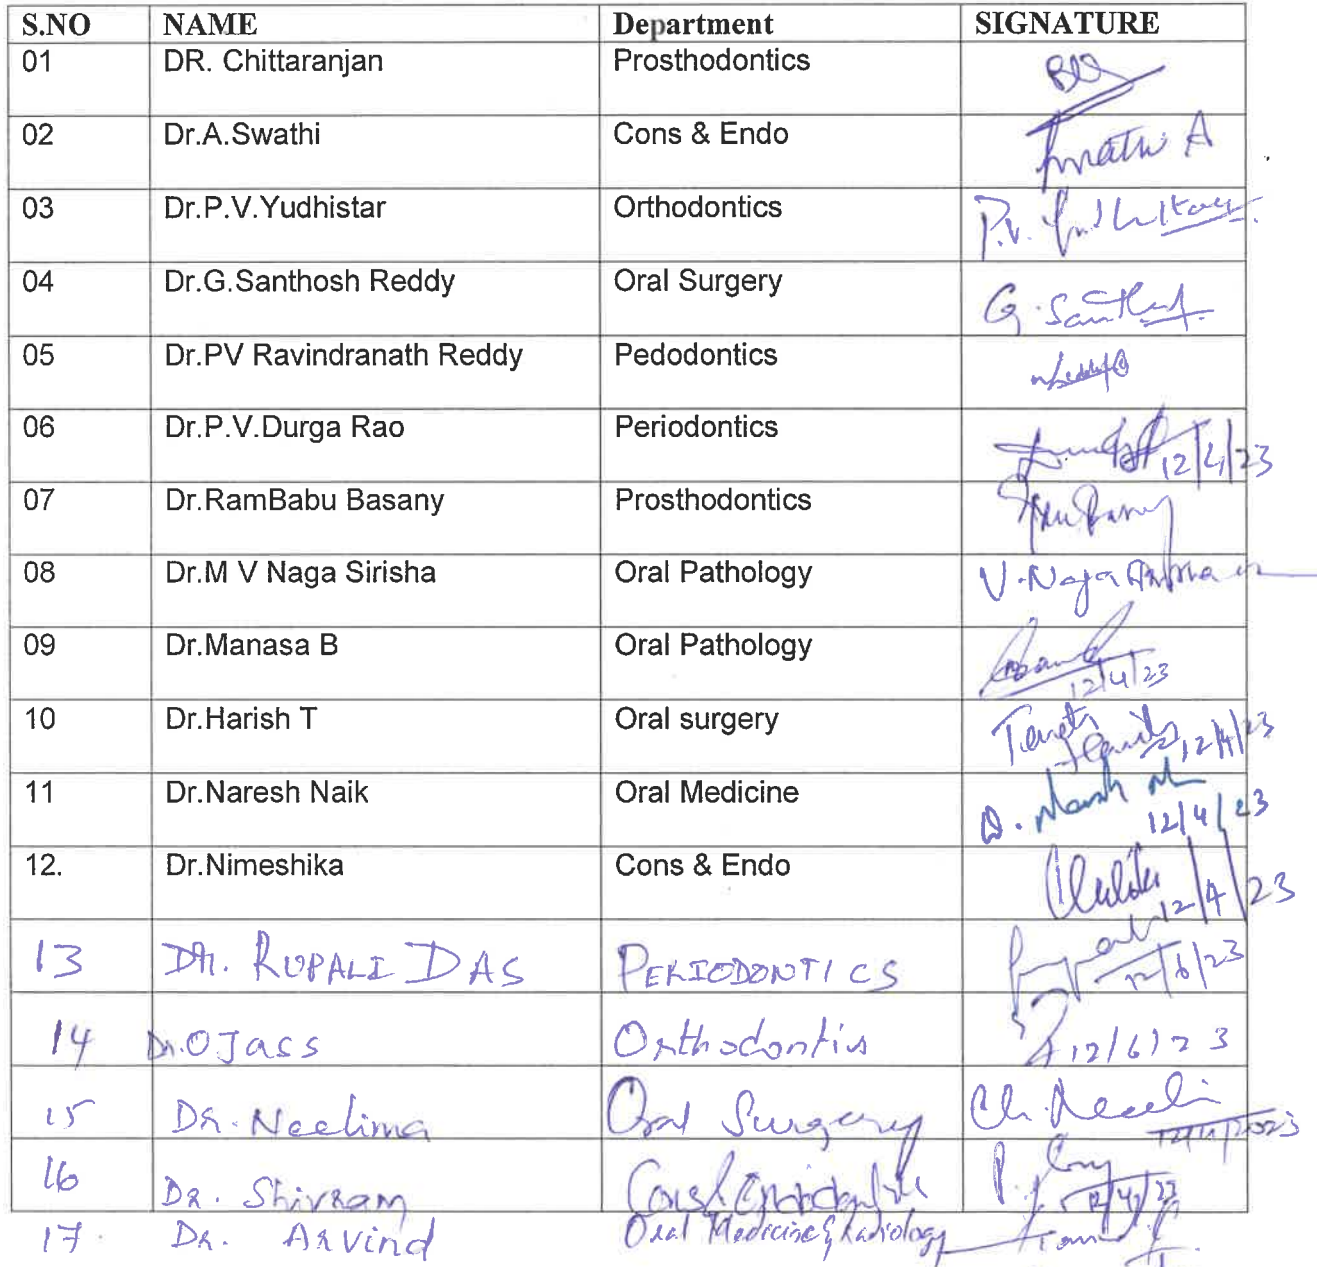 S.NO NAME Department SIGNATURE
01 DR. Chittaranjan Prosthodontics
02 Dr.A.Swathi Cons & Endo
03 Dr.P.V.Yudhistar Orthodontics P.V.
04 Dr.G.Santhosh Reddy Oral Surgery G. Santhosh
05 Dr.PV Ravindranath Reddy Pedodontics
06 Dr.P.V.Durga Rao Periodontics 12/4/23
07 Dr.RamBabu Basany Prosthodontics
08 Dr.M V Naga Sirisha Oral Pathology V. Naga
09 Dr.Manasa B Oral Pathology 12/4/23
10 Dr.Harish T Oral surgery 12/4/23
11 Dr.Naresh Naik Oral Medicine 12/4/23
12. Dr.Nimeshika Cons & Endo 12/4/23
13 DR. RUPALI DAS PERIODONTICS 12/6/23
14 Dr.OJass Orthodontis 12/6/23
15 DR. Neelima Oral Surgery Ch.
16 DR. Shivram P. 12/4/23
17. DR. Arvind Oral Medicine & Radiology